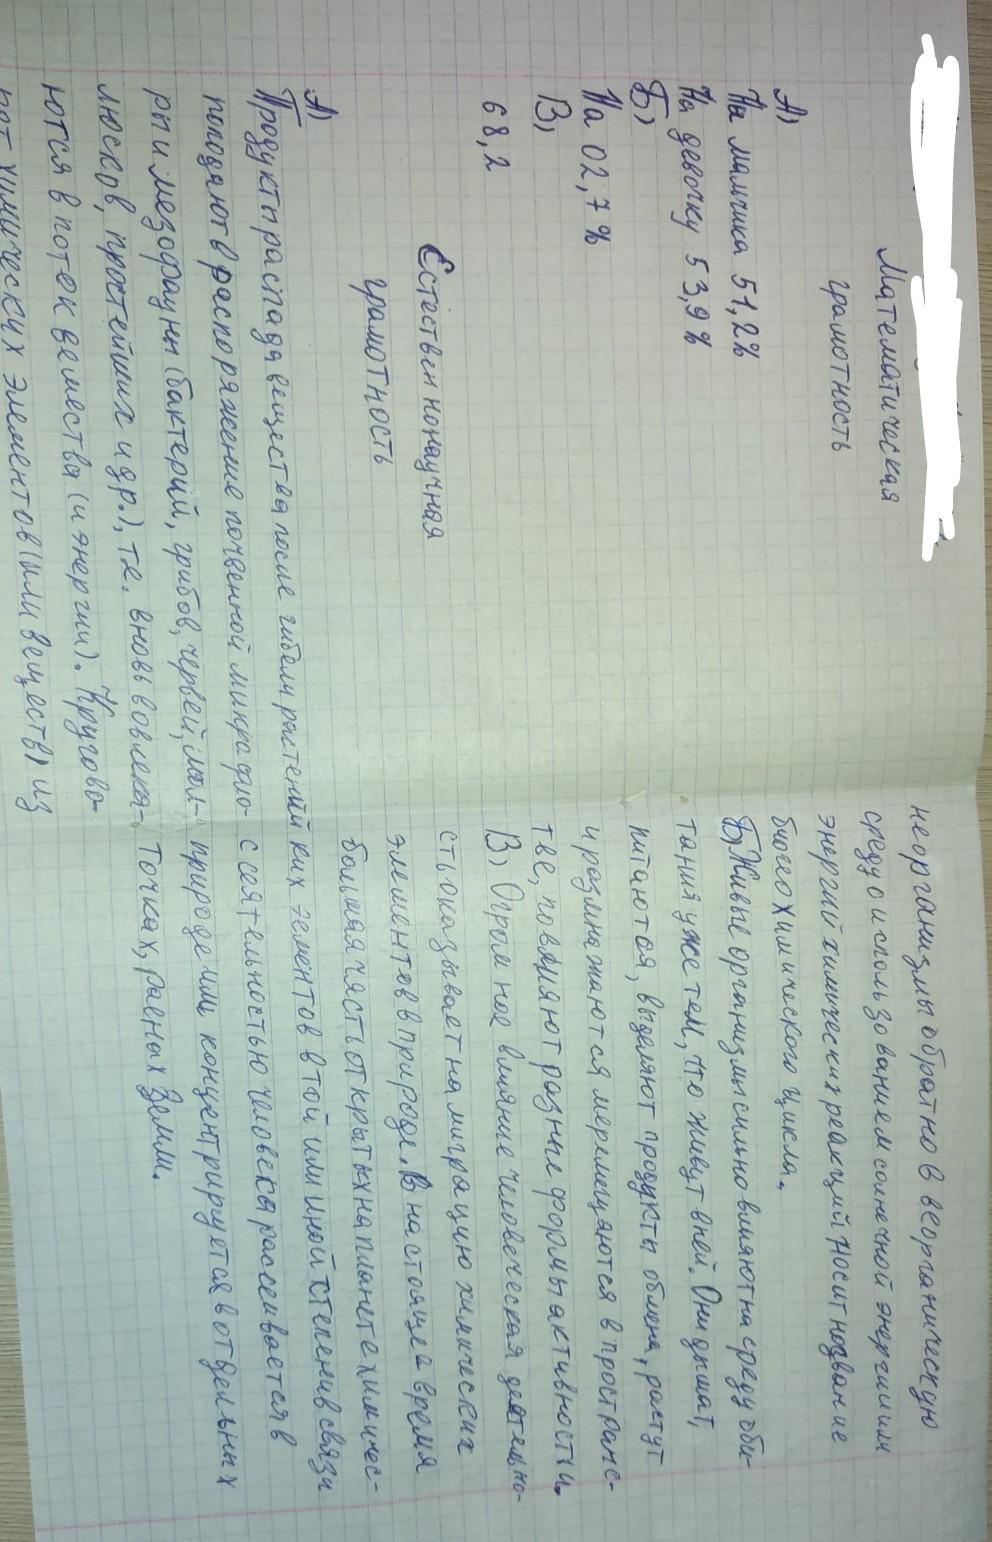 Математическая
грамотность
А)
На мальчика 51,2%
На девочку 53,9%
Б)
На 02,7%
В)
68,2
Естественнонаучная
грамотность
А)
Продукты распада вещества после гибели растений
попадают в распоряжение почвенной микрофло-
ры и мезофауны (бактерий, грибов, червей, мол-
люсков, простейших и др.), т.е. вновь вовлека-
ются в поток вещества (и энергии). Кругово-
рот химических элементов (или веществ) из
неорганизмы обратно в веорганискую
среду с использованием солнечной энергии или
энергии химических реакций носит название
биогеохимического цикла.
Б) Живые организмы сильно влияют на среду оби-
тания уже тем, что живут в ней. Они дышат,
питаются, выделяют продукты обмена, растут
и размножаются меремещаются в пространс-
тве, повяряют разные формы активности.
В) Огромное влияние человеческая деятельно-
сть оказывает на миграцию химических
элементов в природе. В настоящее время
большая часть открытых на планете химичес-
ких эементов в той или иной степени в связи
с сеятельностью человека рассеивается в
природе или концентрируется в отдельных
точках, раеных Земли.